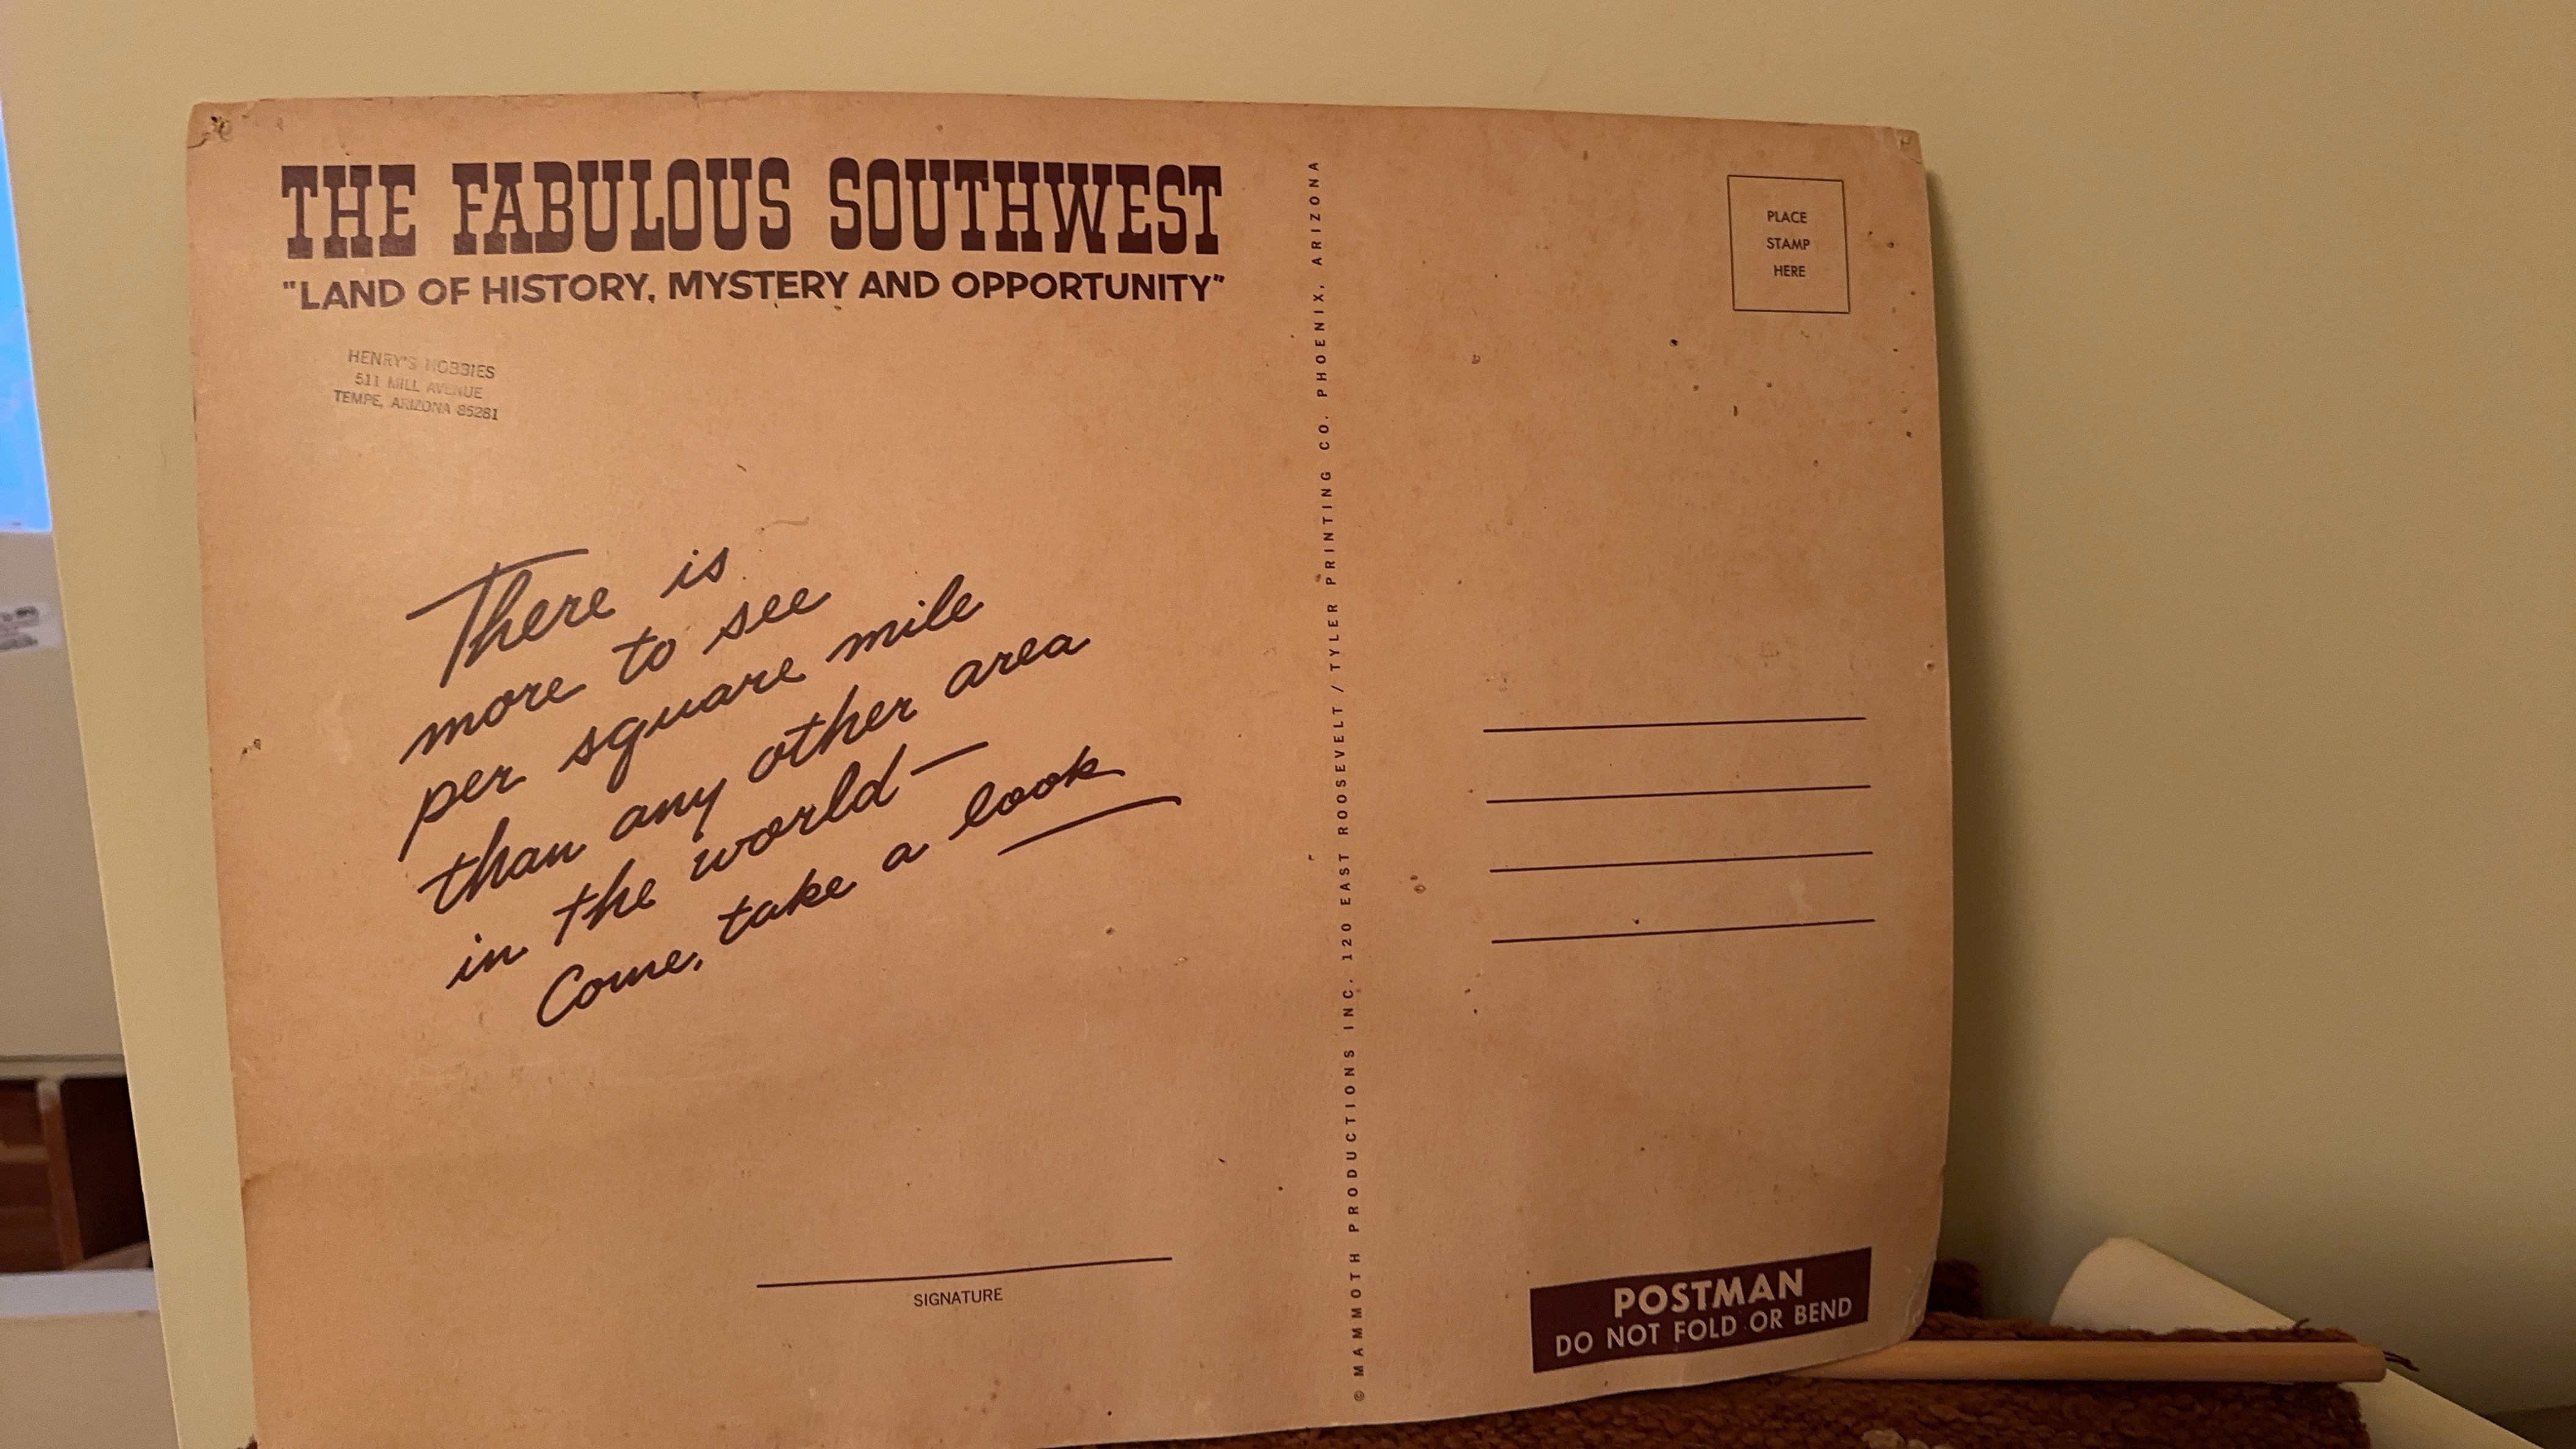 THE FABULOUS SOUTHWEST
"LAND OF HISTORY, MYSTERY AND OPPORTUNITY"
HENRY'S HOBBIES
511 MILL AVENUE
TEMPE, ARIZONA 85281
There is
more to see
per square mile
than any other area
in the world—
Come, take a look
SIGNATURE
© MAMMOTH PRODUCTIONS INC. 120 EAST ROOSEVELT / TYLER PRINTING CO. PHOENIX, ARIZONA
PLACE
STAMP
HERE
POSTMAN
DO NOT FOLD OR BEND